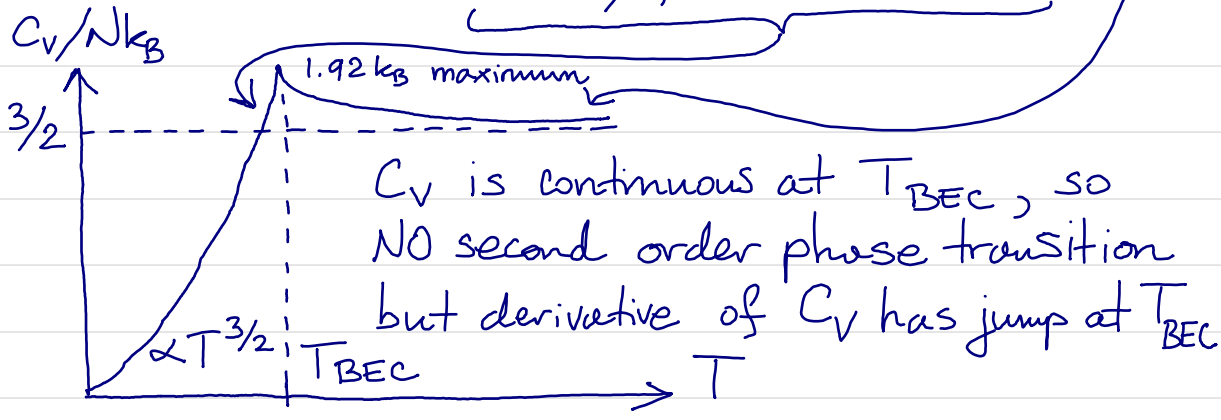 Cv/NkB
1.92 kB maximum
3/2
Cv is continuous at TBEC, so
NO second order phase transition
but derivative of Cv has jump at TBEC
∝T^3/2
TBEC
T